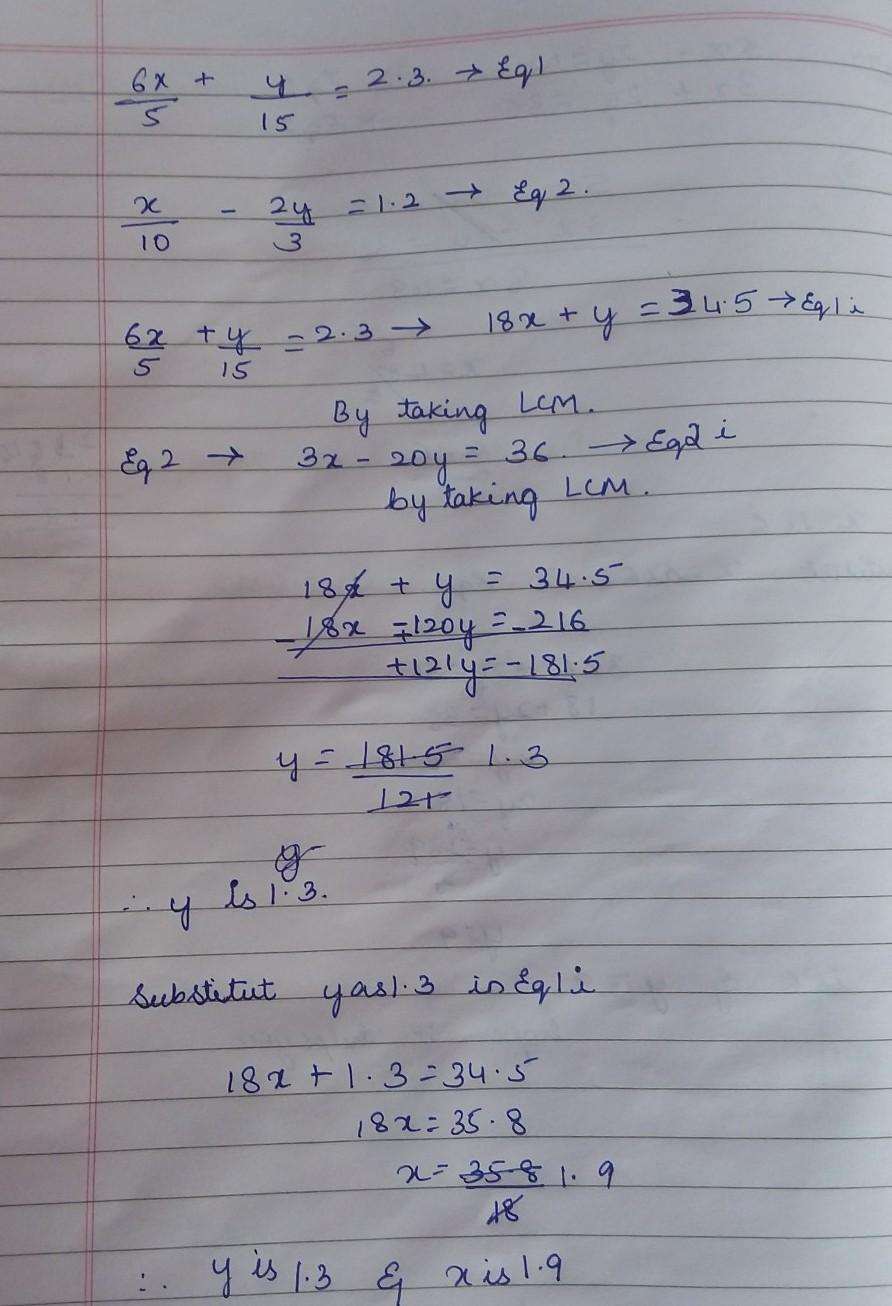 6x/5 + y/15 = 2.3. → Eq1
x/10 - 2y/3 = 1.2 → Eq 2.
6x/5 + y/15 = 2.3 → 18x + y = 34.5 → Eq1 i
By taking LCM.
Eq 2 → 3x - 20y = 36. → Eq2 i
by taking LCM.
18x + y = 34.5
- 18x ∓ 120y = - 216
+121y = - 181.5
y = 181.5/121 1.3
y
∴ y is 1.3.
Substitut y as 1.3 in Eq1 i
18x + 1.3 = 34.5
18x = 35.8
x = 35.8/18 1.9
∴ y is 1.3 & x is 1.9